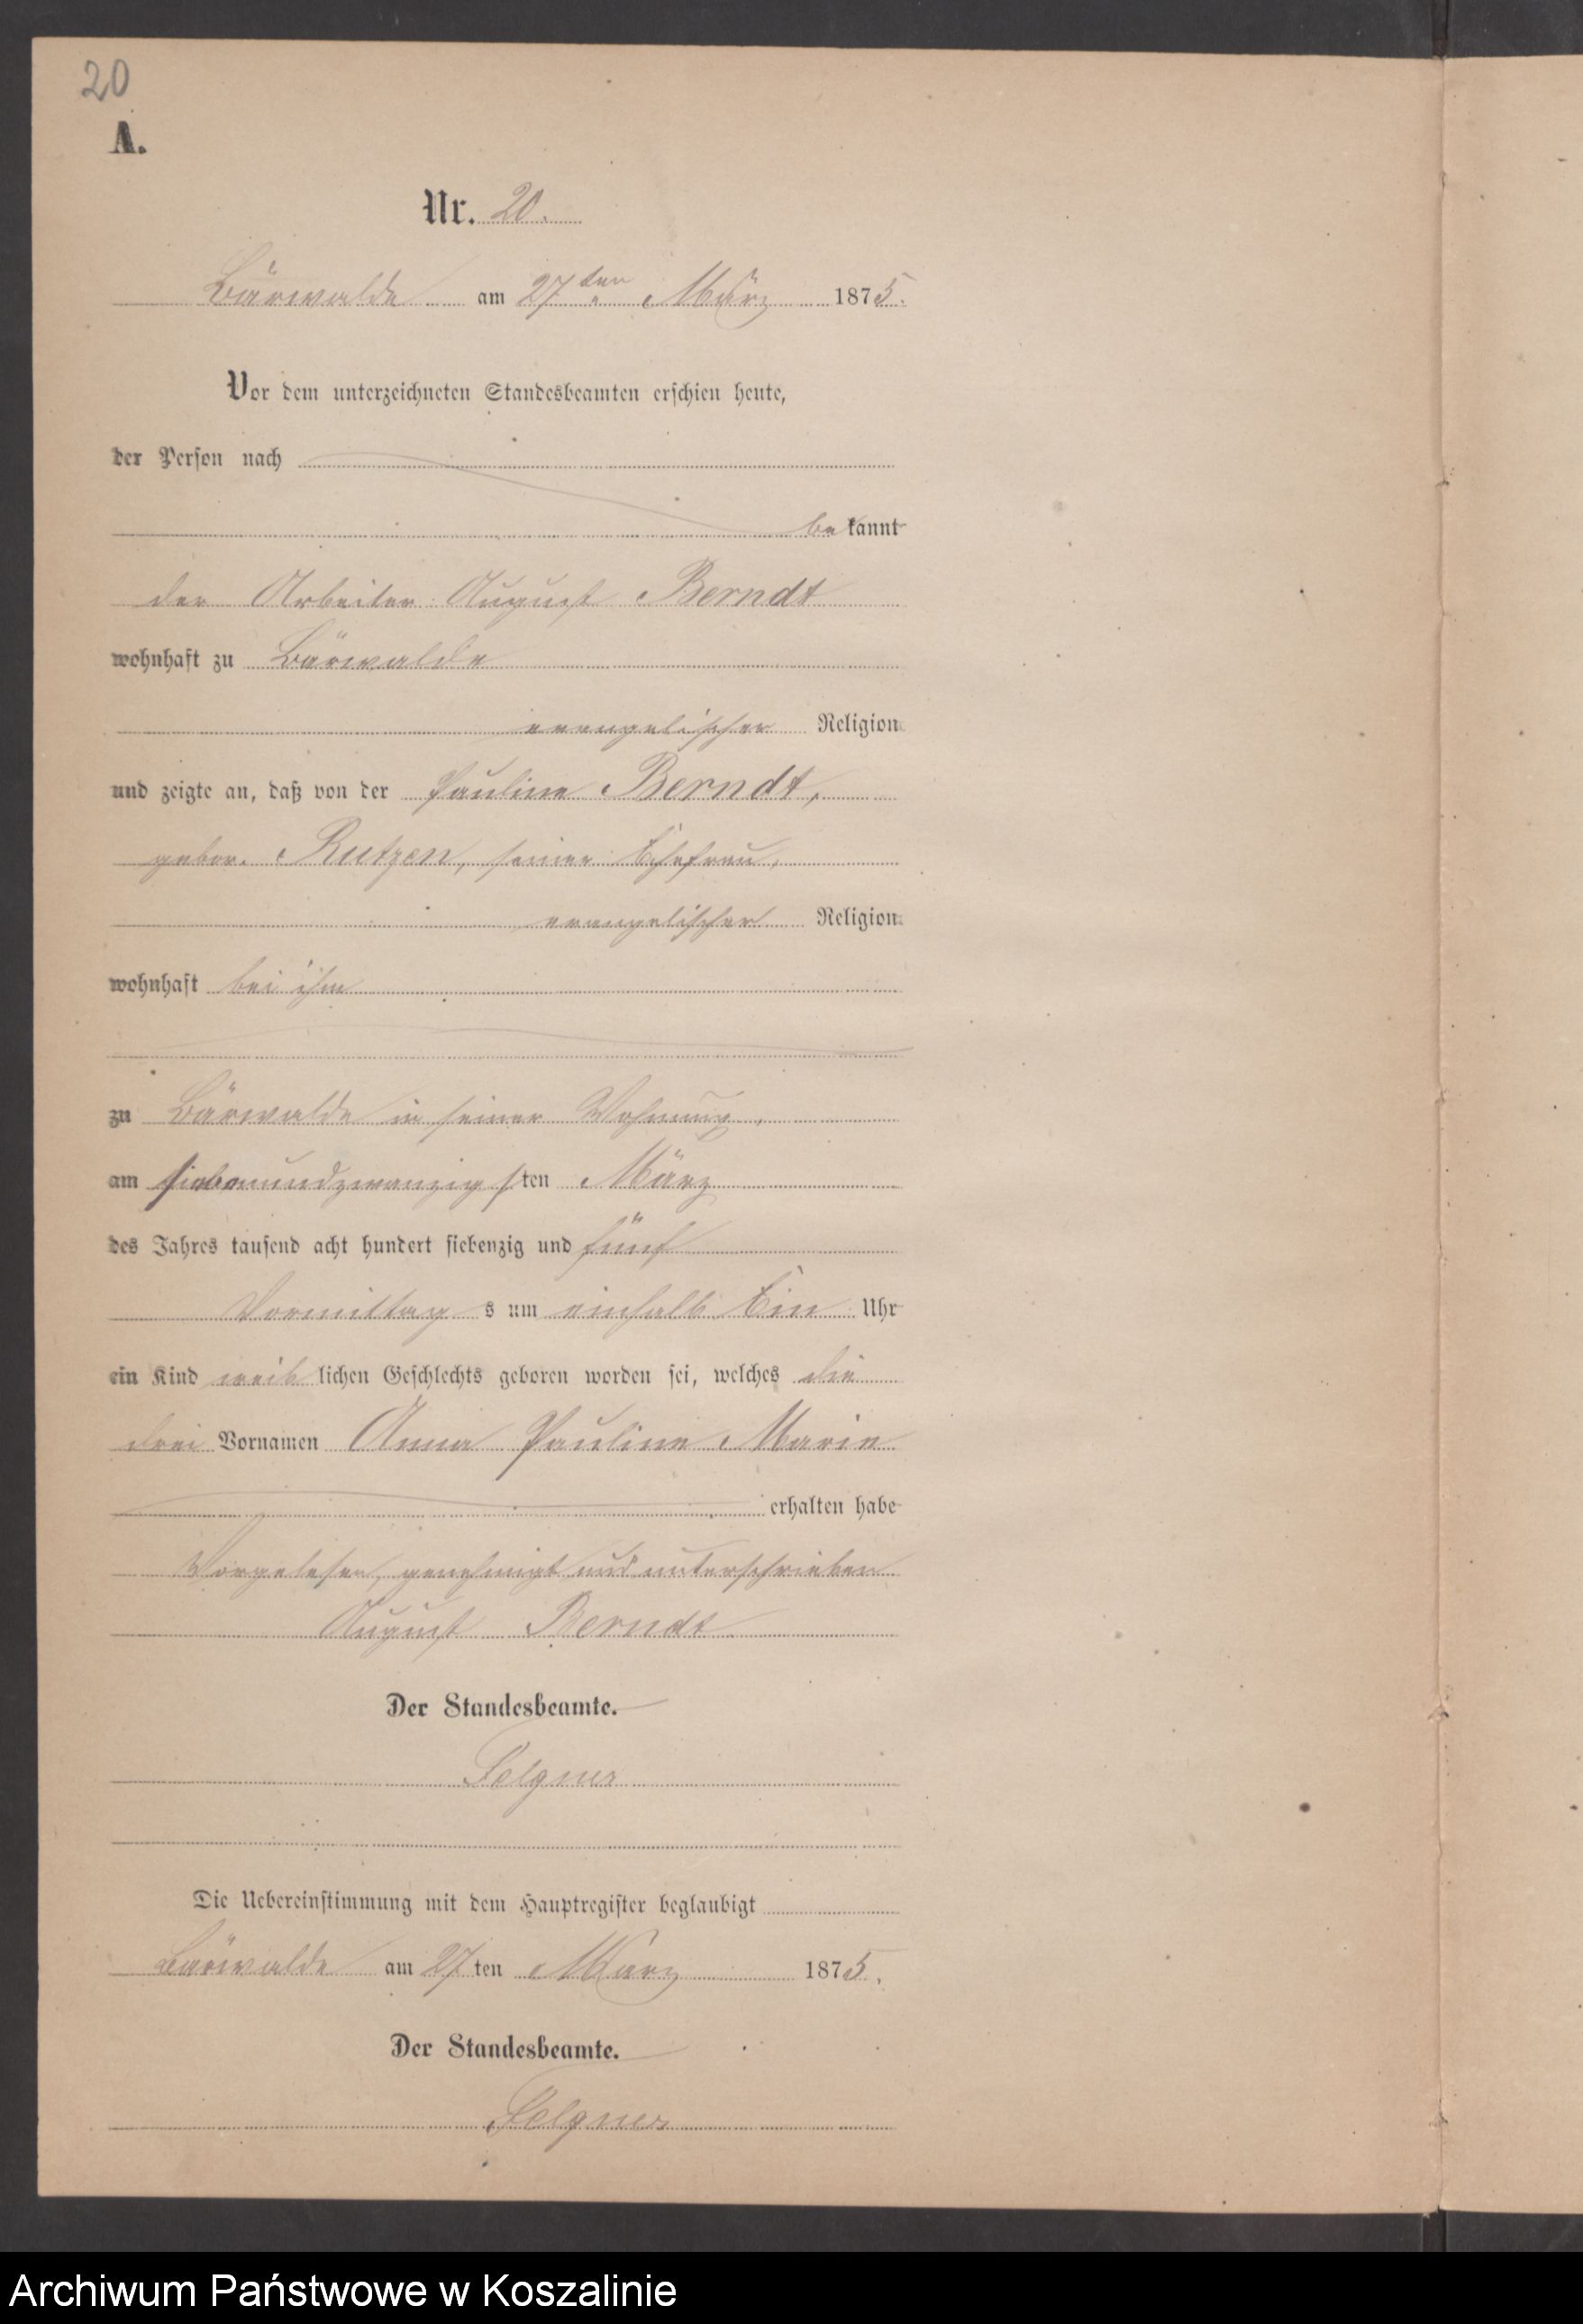 20
A.
Nr. 20.
Bärwalde am 27ten März 1875.
Vor dem unterzeichneten Standesbeamten erschien heute,
der Person nach
bekannt
der Arbeiter August Berndt
wohnhaft zu Bärwalde
evangelischer Religion
und zeigte an, daß von der Pauline Berndt,
gebor. Rutzen, seiner Ehefrau,
evangelischer Religion
wohnhaft bei ihm
zu Bärwalde in seiner Wohnung,
am siebenundzwanzigsten März
des Jahres tausend acht hundert siebenzig und fünf
Vormittags um einhalb Ein Uhr
ein Kind weiblichen Geschlechts geboren worden sei, welches die
drei Vornamen Anna Pauline Marie
erhalten habe
Vorgelesen, genehmigt und unterschrieben
August Berndt
Der Standesbeamte.
Felgner
Die Uebereinstimmung mit dem Hauptregister beglaubigt
Bärwalde am 27ten März 1875.
Der Standesbeamte.
Felgner
Archiwum Państwowe w Koszalinie